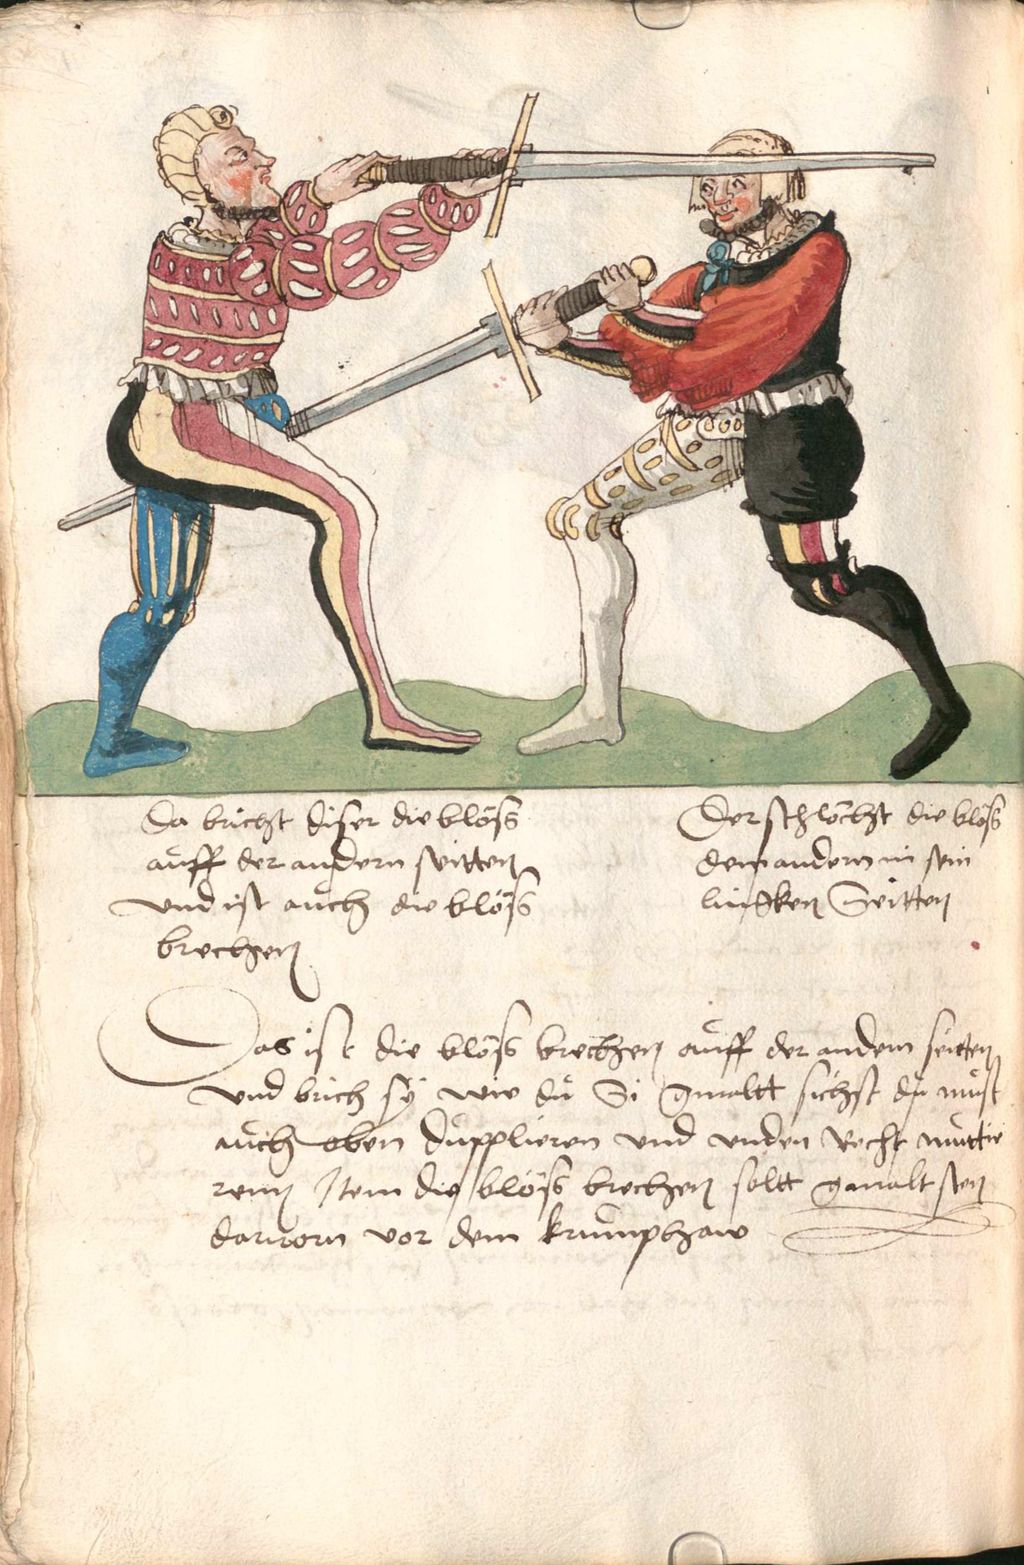 Da bricht diser die blöss
auff der andern seitten
und ist auch die blöss
brechen
Der schlöcht die blöss
dem andern in sein
lincken Seitten
Das ist die blöss brechen auff der andern seitten
und brich sy wie du Si gmaltt sichst du must
auch eben dupplieren und unden recht muttie
renn Item die blöss brechen soltt gmalt sten
darvorn vor dem krumphaw